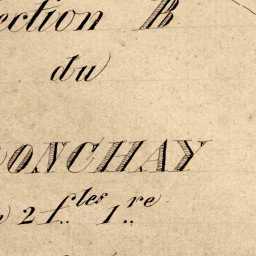 ection B
du
ONCHAY
2 f.les 1.re